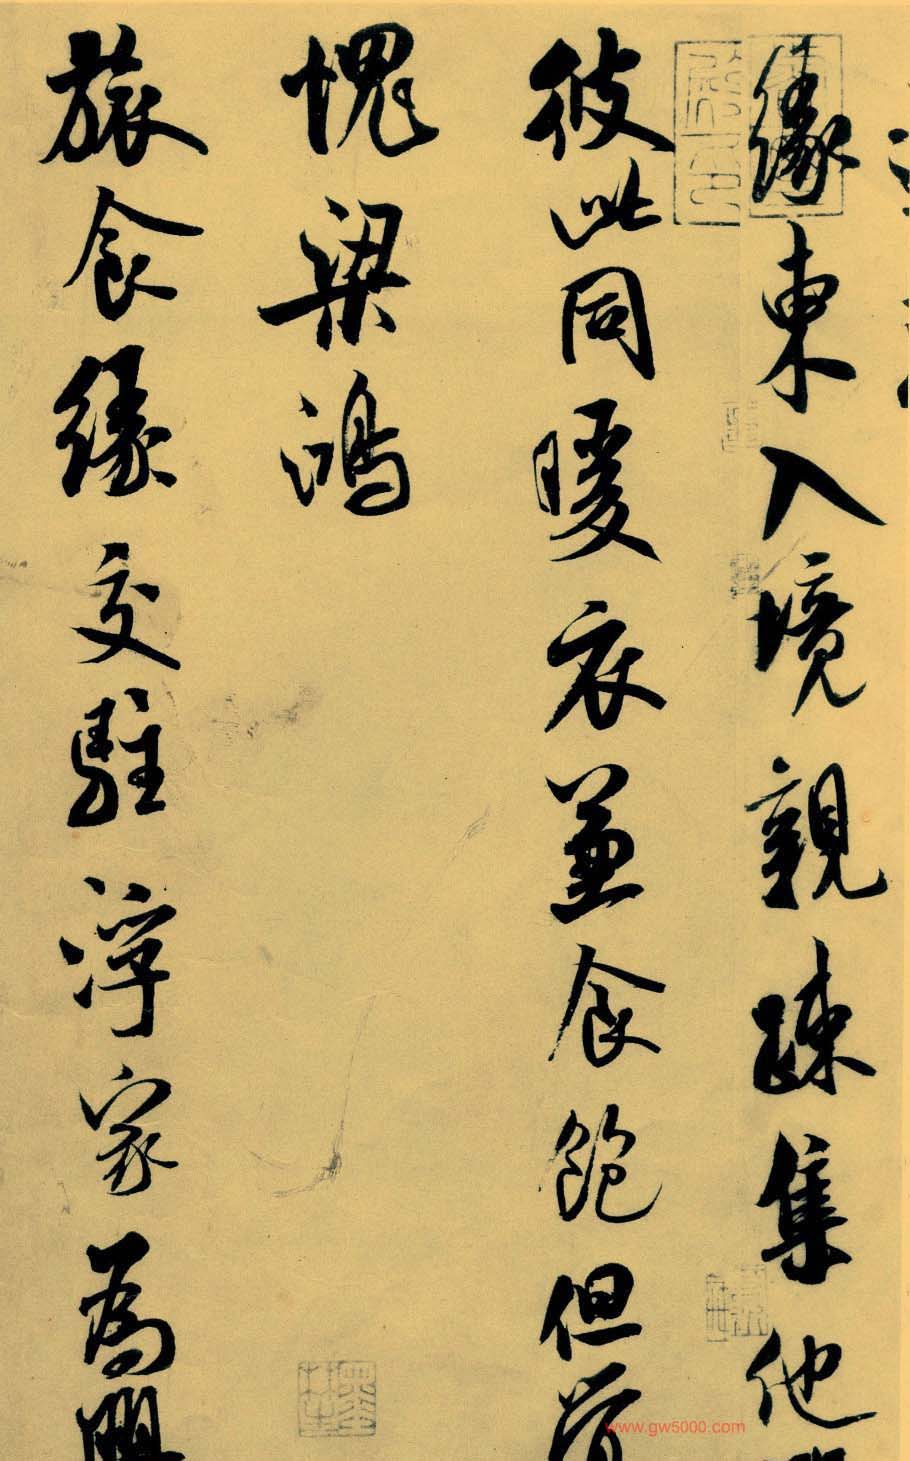 緣東入境親疎集他
彼此同暖衣兼食飽但
愧梁鴻
旅食緣交駐浮家為興
www.gw5000.com